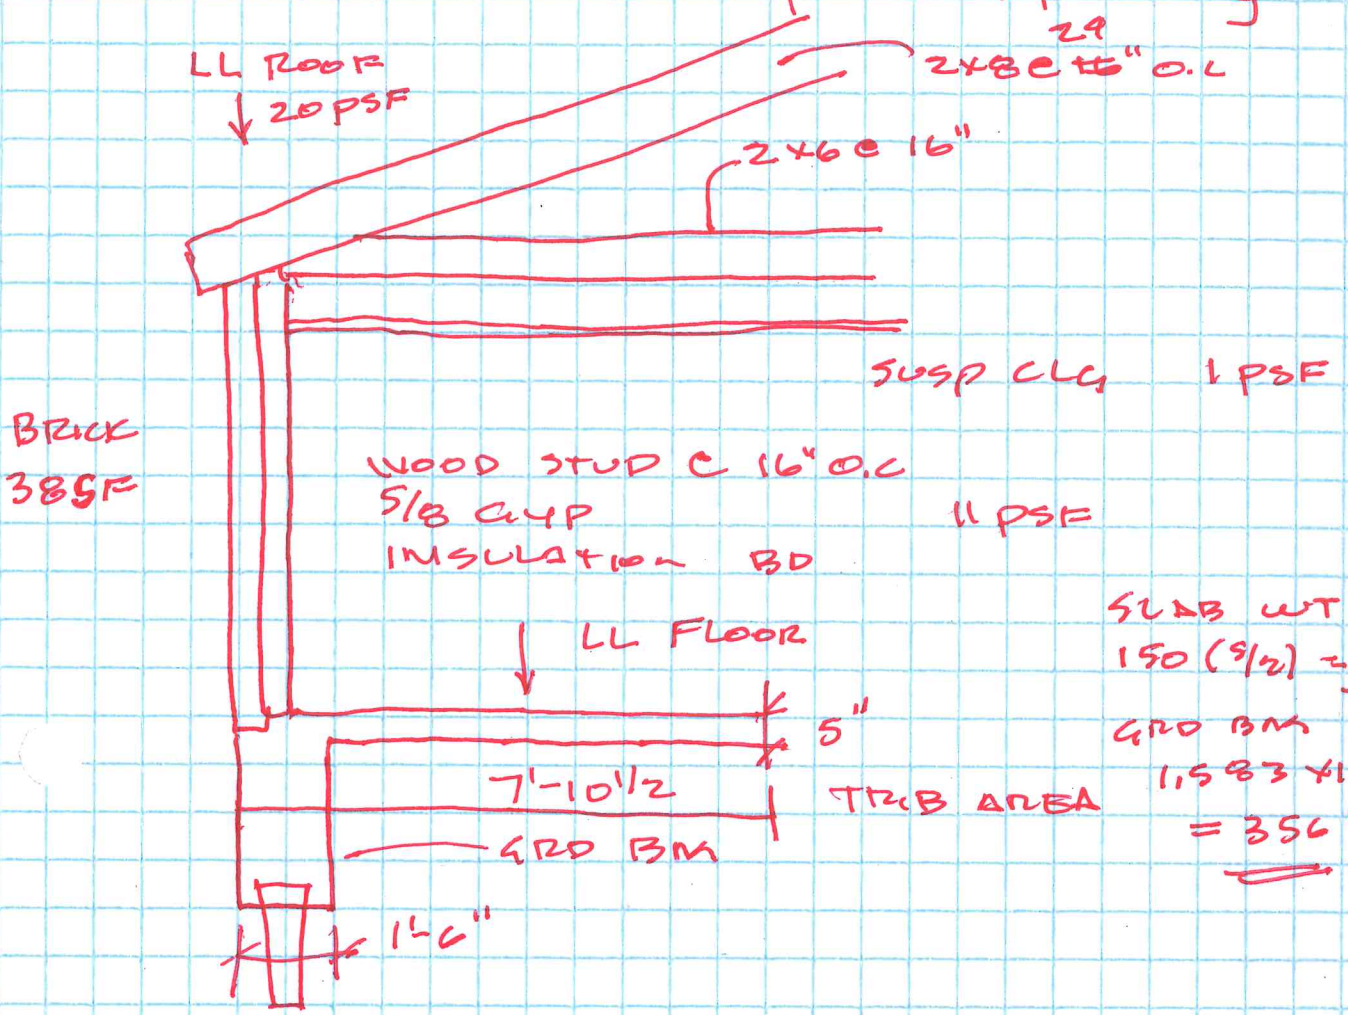 24
LL ROOF
20 PSF
2x8 @ 16" O.C
2x6 @ 16"
SUSP CLG 1 PSF
BRICK
38 SF
WOOD STUD @ 16" O.C
5/8 GYP 11 PSF
INSULATION BD
LL FLOOR
SLAB WT
150 (5/12) =
5"
GRD BM
1,583 x1
= 356
7'-10 1/2
TRIB AREA
GRD BM
1'-6"